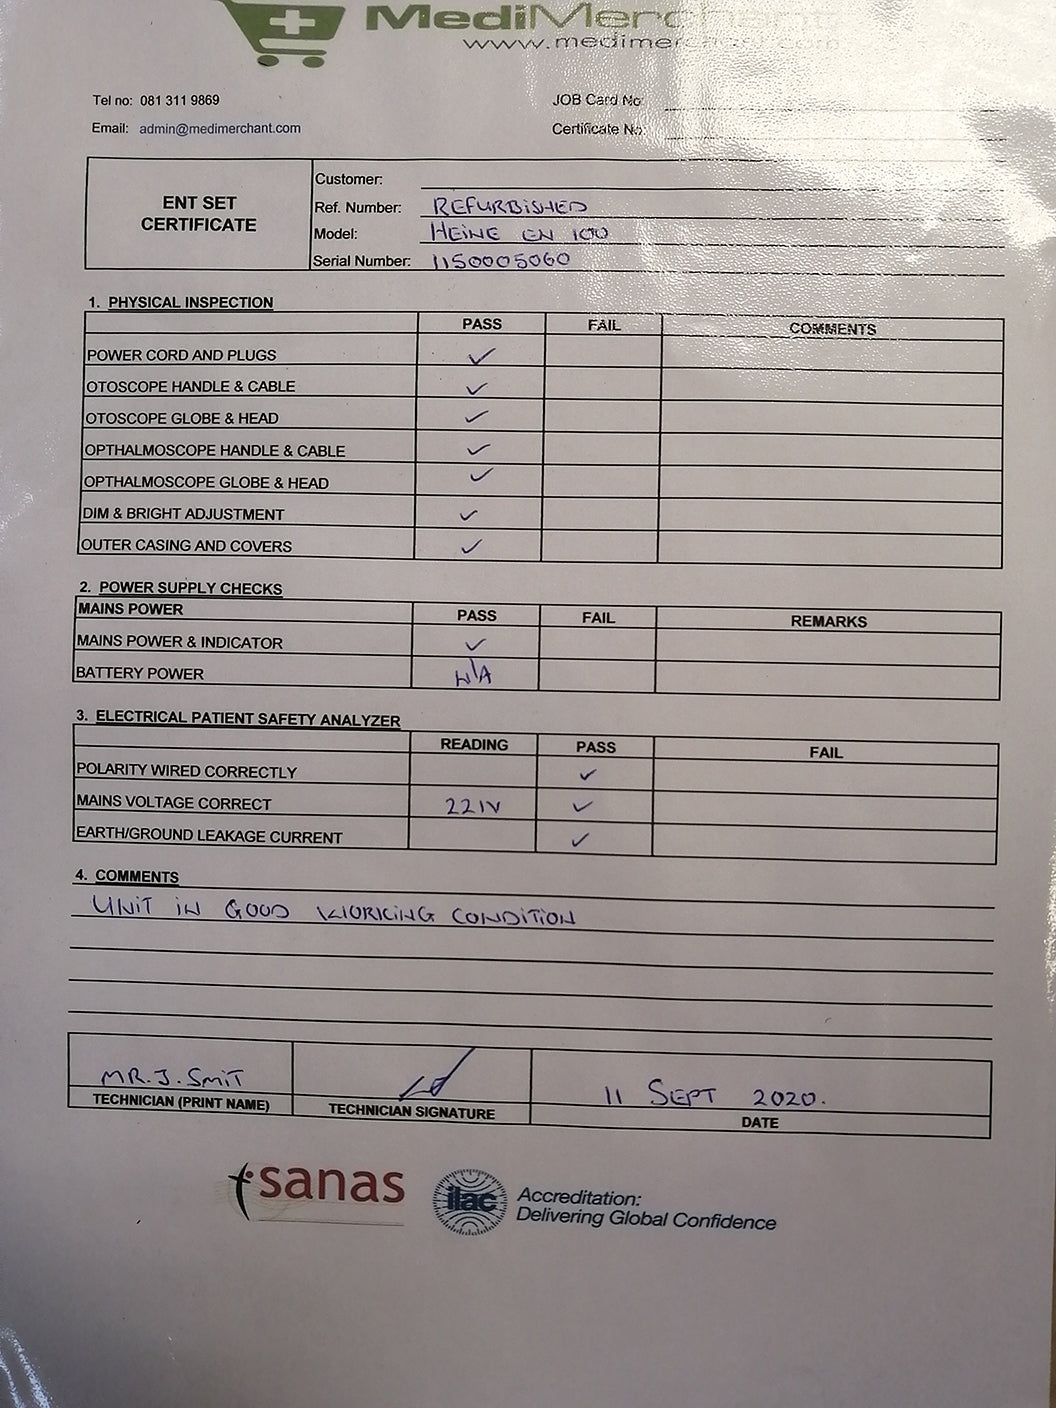 MediMerchant
www.medimerchant.com
Tel no: 081 311 9869
JOB Card No:
Email: admin@medimerchant.com
Certificate No:
ENT SET
CERTIFICATE
Customer:
Ref. Number: REFURBISHED
Model: HEINE EN 100
Serial Number: 1150005060
1. PHYSICAL INSPECTION
PASS FAIL COMMENTS
POWER CORD AND PLUGS ✓
OTOSCOPE HANDLE & CABLE ✓
OTOSCOPE GLOBE & HEAD ✓
OPTHALMOSCOPE HANDLE & CABLE ✓
OPTHALMOSCOPE GLOBE & HEAD ✓
DIM & BRIGHT ADJUSTMENT ✓
OUTER CASING AND COVERS ✓
2. POWER SUPPLY CHECKS
MAINS POWER PASS FAIL REMARKS
MAINS POWER & INDICATOR ✓
BATTERY POWER N/A
3. ELECTRICAL PATIENT SAFETY ANALYZER
READING PASS FAIL
POLARITY WIRED CORRECTLY ✓
MAINS VOLTAGE CORRECT 221V ✓
EARTH/GROUND LEAKAGE CURRENT ✓
4. COMMENTS
UNIT IN GOOD WORKING CONDITION
MR. J. SMIT 11 SEPT 2020.
TECHNICIAN (PRINT NAME) TECHNICIAN SIGNATURE DATE
sanas
ilac
Accreditation:
Delivering Global Confidence